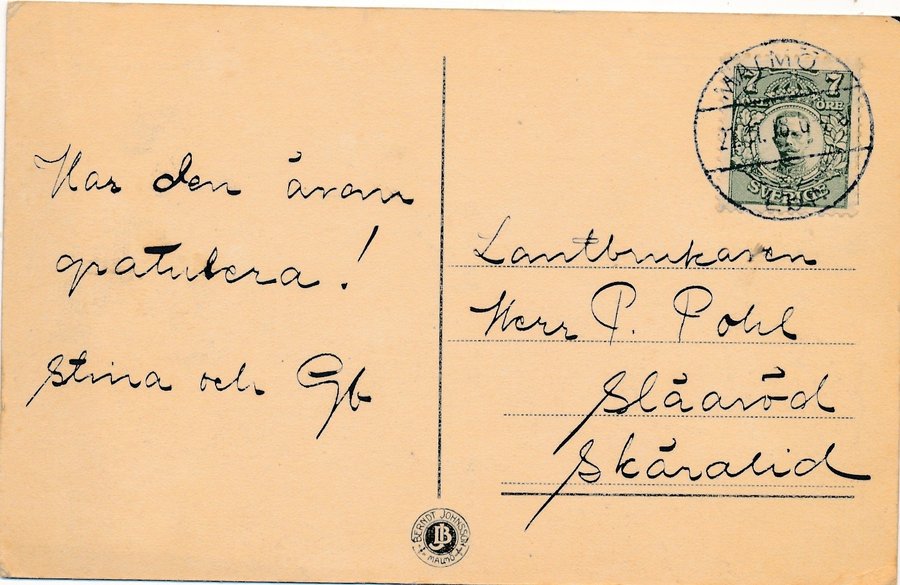 Har den äran
gratulera!
Stina och Gb
MALMÖ
7 7
ÖRE
SVERIGE
Lantbrukaren
Herr P. Pohl
Slåaröd
Skäralid
BERNDT JOHNSSON
JB
MALMÖ